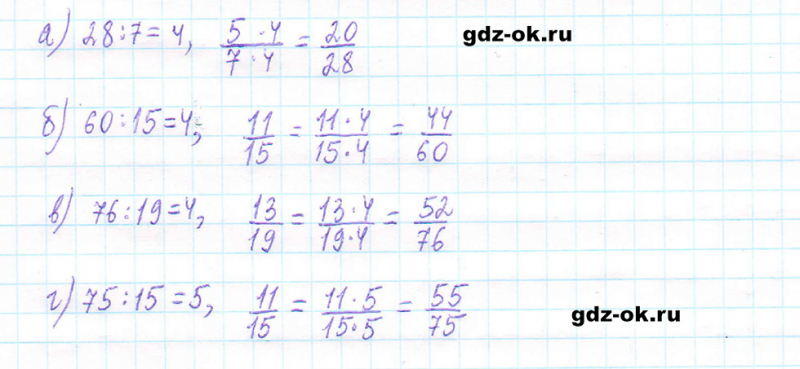 а) 28:7=4, 5·4/7·4 = 20/28 gdz-ok.ru
б) 60:15=4; 11/15 = 11·4/15·4 = 44/60
в) 76:19=4, 13/19 = 13·4/19·4 = 52/76
г) 75:15=5, 11/15 = 11·5/15·5 = 55/75 gdz-ok.ru